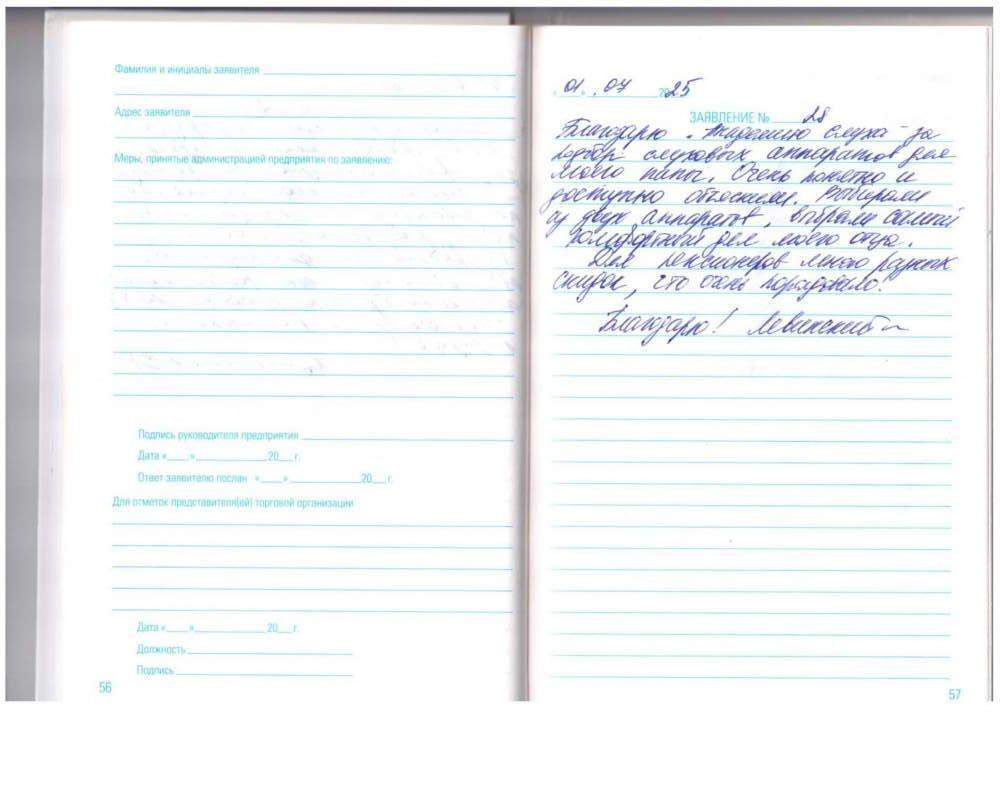 Фамилия и инициалы заявителя
Адрес заявителя
Меры, принятые администрацией предприятия по заявлению:
Подпись руководителя предприятия
Дата «____»____________20___г.
Ответ заявителю послан «____»____________20___г.
Для отметок представителя(ей) торговой организации
Дата «____»____________20___г.
Должность
Подпись
56
01. 07 2025
ЗАЯВЛЕНИЕ № 28
Благодарю "Академию слуха" за
подбор слуховых аппаратов для
моего папы. Очень понятно и
доступно объяснили. Выбирали
из двух аппаратов, выбрали самый
комфортный для моего отца.
Для пенсионеров много разных
скидок, что очень порадовало!
Благодарю! Левинский
57